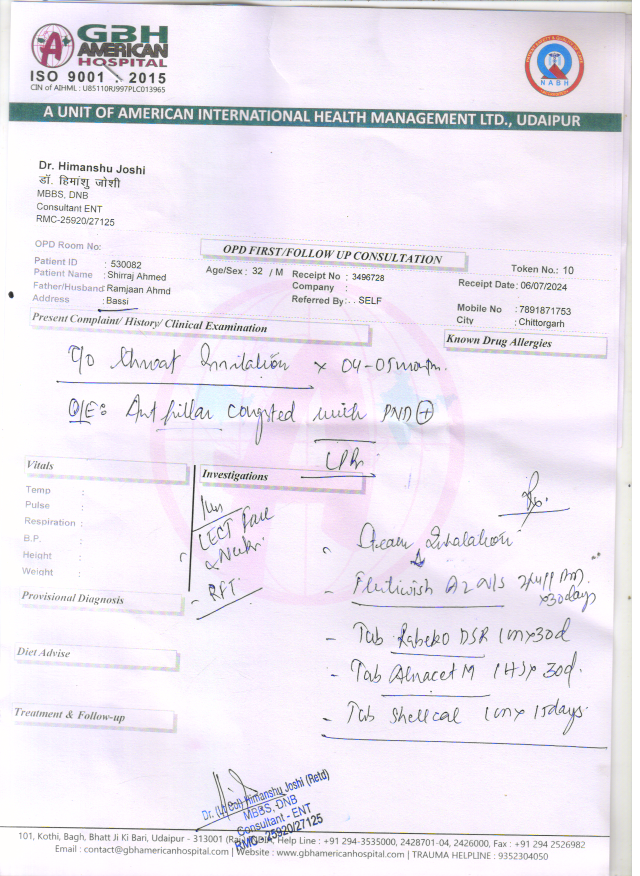 GBH
AMERICAN
HOSPITAL
ISO 9001 : 2015
CIN of AIHML : U85110RJ997PLC013965
NABH
A UNIT OF AMERICAN INTERNATIONAL HEALTH MANAGEMENT LTD., UDAIPUR
Dr. Himanshu Joshi
डॉ. हिमांशु जोशी
MBBS, DNB
Consultant ENT
RMC-25920/27125
OPD Room No:
OPD FIRST/FOLLOW UP CONSULTATION
Token No.: 10
Patient ID : 530082
Patient Name : Shirraj Ahmed
Age/Sex : 32 / M
Receipt No : 3496728
Receipt Date : 06/07/2024
Father/Husband Ramjaan Ahmd
Company :
Address : Bassi
Referred By : . . SELF
Mobile No : 7891871753
City : Chittorgarh
Present Complaint/ History/ Clinical Examination
Known Drug Allergies
throat Irritation x 04-05 month.
O/E: Ant pillar congested with PND +
Vitals
Investigations
Temp :
Pulse :
Respiration :
B.P. :
Height :
Weight :
CECT
- RFT
Steam Inhalation
- AZ x30days
- Tab DSR x30d
- Tab M 1HS x 30d.
- Tab Shellcal x 15days
Provisional Diagnosis
Diet Advise
Treatment & Follow-up
Dr. (Lt Col) Himanshu Joshi (Retd)
MBBS, DNB
Consultant - ENT
RMC-25920/27125
101, Kothi, Bagh, Bhatt Ji Ki Bari, Udaipur - 313001 Help Line : +91 294-3535000, 2428701-04, 2426000, Fax : +91 294 2526982
Email : contact@gbhamericanhospital.com | Website : www.gbhamericanhospital.com | TRAUMA HELPLINE : 9352304050